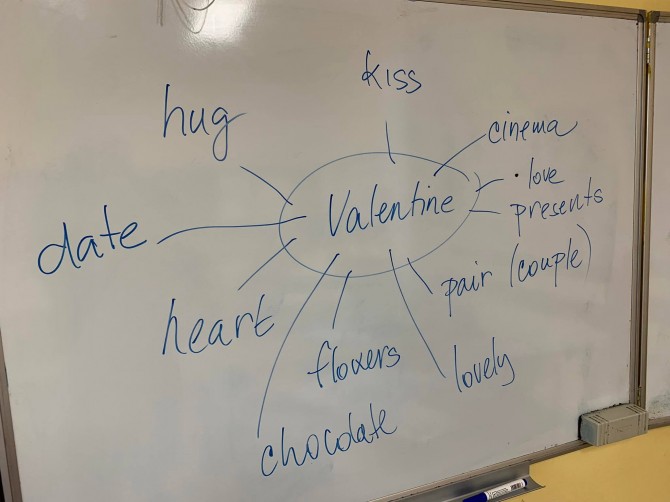 kiss
hug
cinema
love
Valentine
presents
date
pair (couple)
heart
flowers
lovely
chocolate